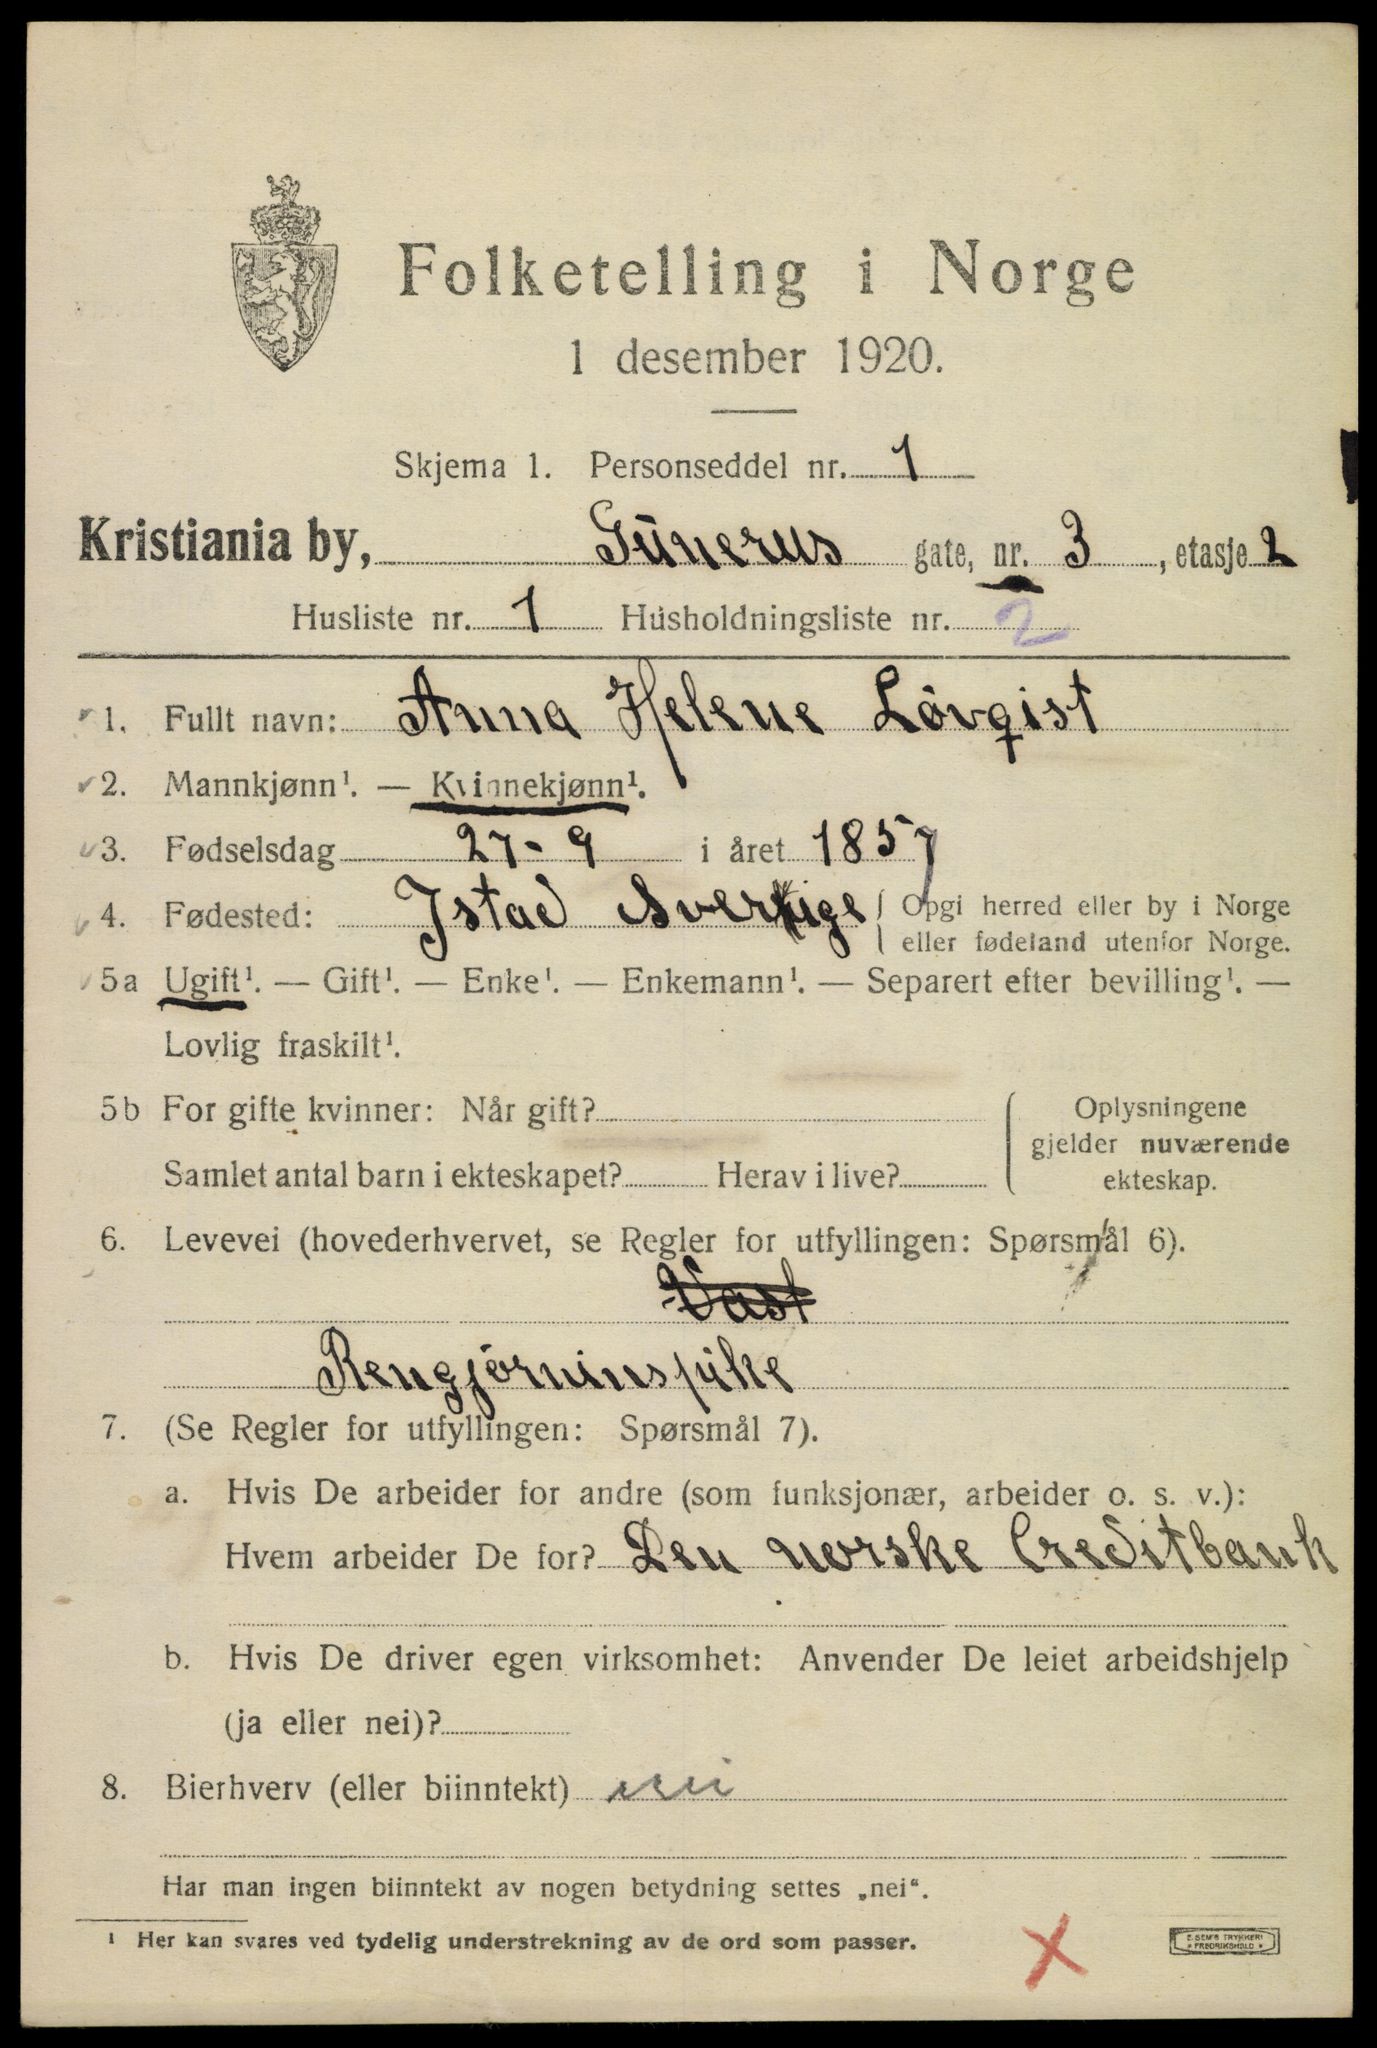 Folketelling i Norge
1 desember 1920.
Skjema 1. Personseddel nr. 1
Kristiania by, Günerus gate, nr. 3, etasje 2
Husliste nr. 1 Husholdningsliste nr. 2
1. Fullt navn: Anna Helene Lövqist
2. Mannkjønn¹. — Kvinnekjønn¹.
3. Fødselsdag 27-9 i året 1857
4. Fødested: Istad Sverige { Opgi herred eller by i Norge
eller fødeland utenfor Norge.
5a Ugift¹. — Gift¹. — Enke¹. — Enkemann¹. — Separert efter bevilling¹. —
Lovlig fraskilt¹.
5b For gifte kvinner: Når gift? Oplysningene
gjelder nuværende
Samlet antal barn i ekteskapet? Herav i live? ekteskap.
6. Levevei (hovederhvervet, se Regler for utfyllingen: Spørsmål 6).
Vast
Rengjörninspike
7. (Se Regler for utfyllingen: Spørsmål 7).
a. Hvis De arbeider for andre (som funksjonær, arbeider o. s. v.):
Hvem arbeider De for? Den norske Creditbank
b. Hvis De driver egen virksomhet: Anvender De leiet arbeidshjelp
(ja eller nei)?
8. Bierhverv (eller biinntekt) nei
Har man ingen biinntekt av nogen betydning settes „nei“.
¹ Her kan svares ved tydelig understrekning av de ord som passer.
X
E. SEM'S TRYKKERI
* FREDRIKSHALD *